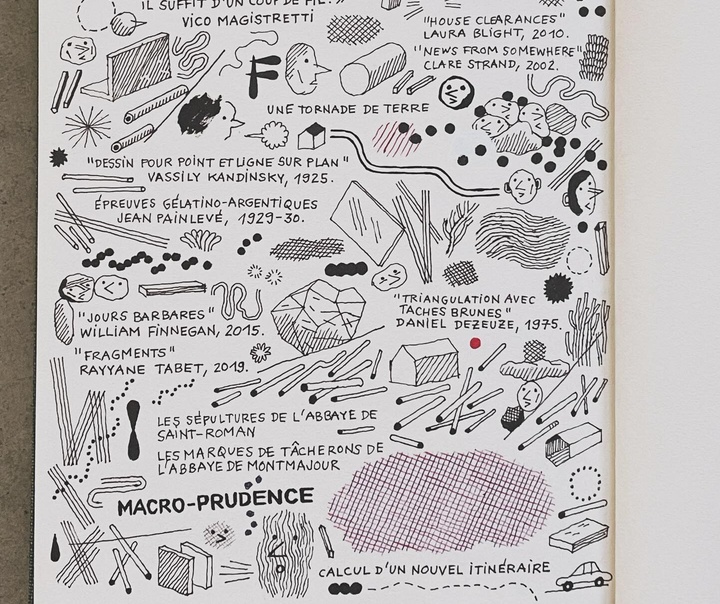 IL SUFFIT D'UN COUP DE FIL. »
VICO MAGISTRETTI
"HOUSE CLEARANCES"
LAURA BLIGHT, 2010.
"NEWS FROM SOMEWHERE"
CLARE STRAND, 2002.
F
UNE TORNADE DE TERRE
"DESSIN POUR POINT ET LIGNE SUR PLAN"
VASSILY KANDINSKY, 1925.
ÉPREUVES GÉLATINO-ARGENTIQUES
JEAN PAINLEVÉ, 1929-30.
"JOURS BARBARES"
WILLIAM FINNEGAN, 2015.
"TRIANGULATION AVEC
TACHES BRUNES"
DANIEL DEZEUZE, 1975.
"FRAGMENTS"
RAYYANE TABET, 2019.
LES SÉPULTURES DE L'ABBAYE DE
SAINT-ROMAN
LES MARQUES DE TÂCHERONS DE
L'ABBAYE DE MONTMAJOUR
MACRO-PRUDENCE
CALCUL D'UN NOUVEL ITINÉRAIRE